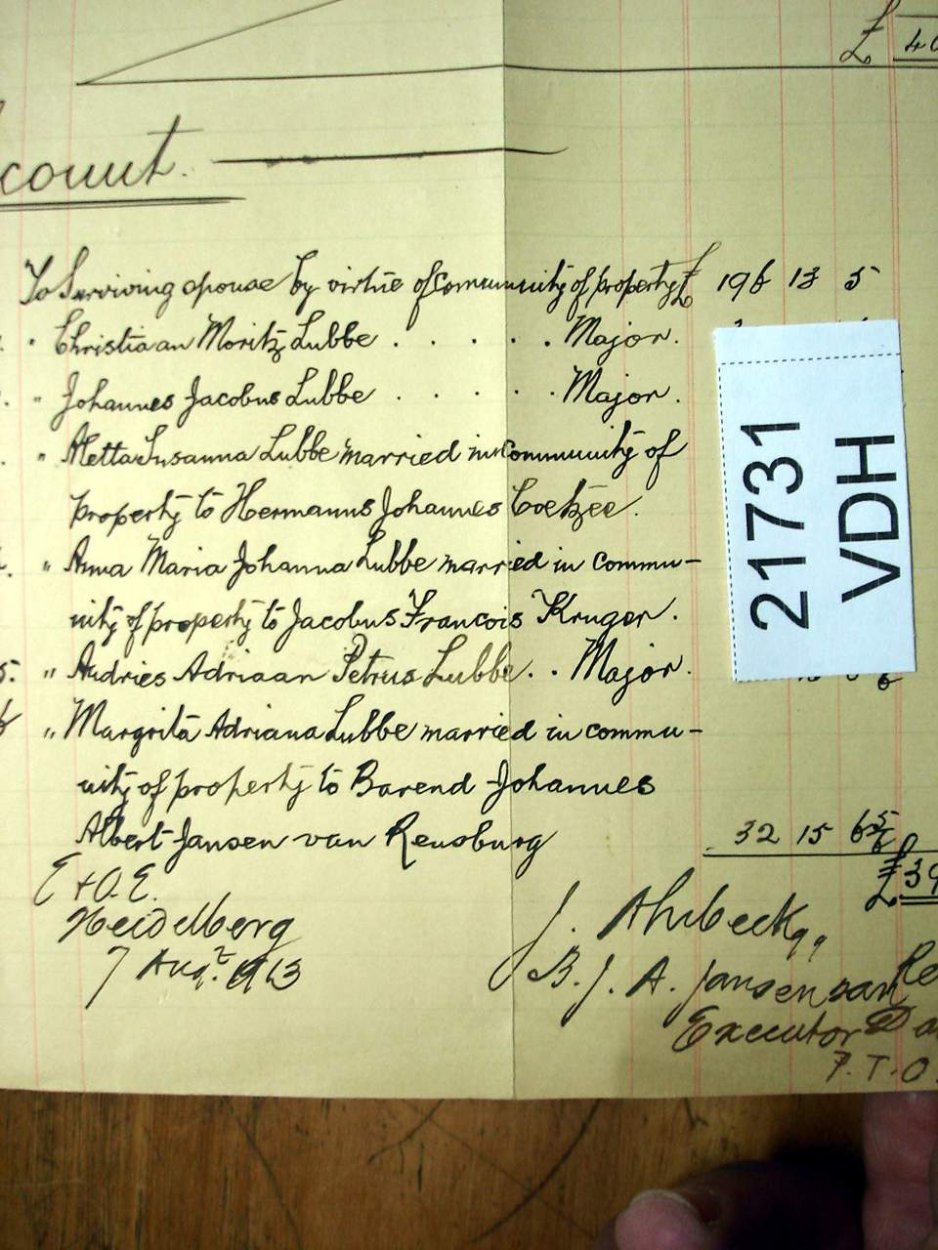 £ 40
count.
To Surviving spouse by virtue of community of property £ 196 13 5
" Christiaan Moritz Lubbe . . . . . Major.
" Johannes Jacobus Lubbe . . . . . Major.
" Aletta Susanna Lubbe married in community of
property to Hermanus Johannes Coetzee.
" Anna Maria Johanna Lubbe married in commu-
nity of property to Jacobus Francois Kruger.
5. " Andries Adriaan Petrus Lubbe . . Major.
6 " Margrita Adriana Lubbe married in commu-
nity of property to Barend Johannes
Albert Jansen van Rensburg 32 15 6 5/6
£ 39
E & O. E.
Heidelberg
7 Aug. 1913
J. Ahrbeck q.q.
B. J. A. Jansen van Re
Executor Da
P.T.O.
21731
VDH